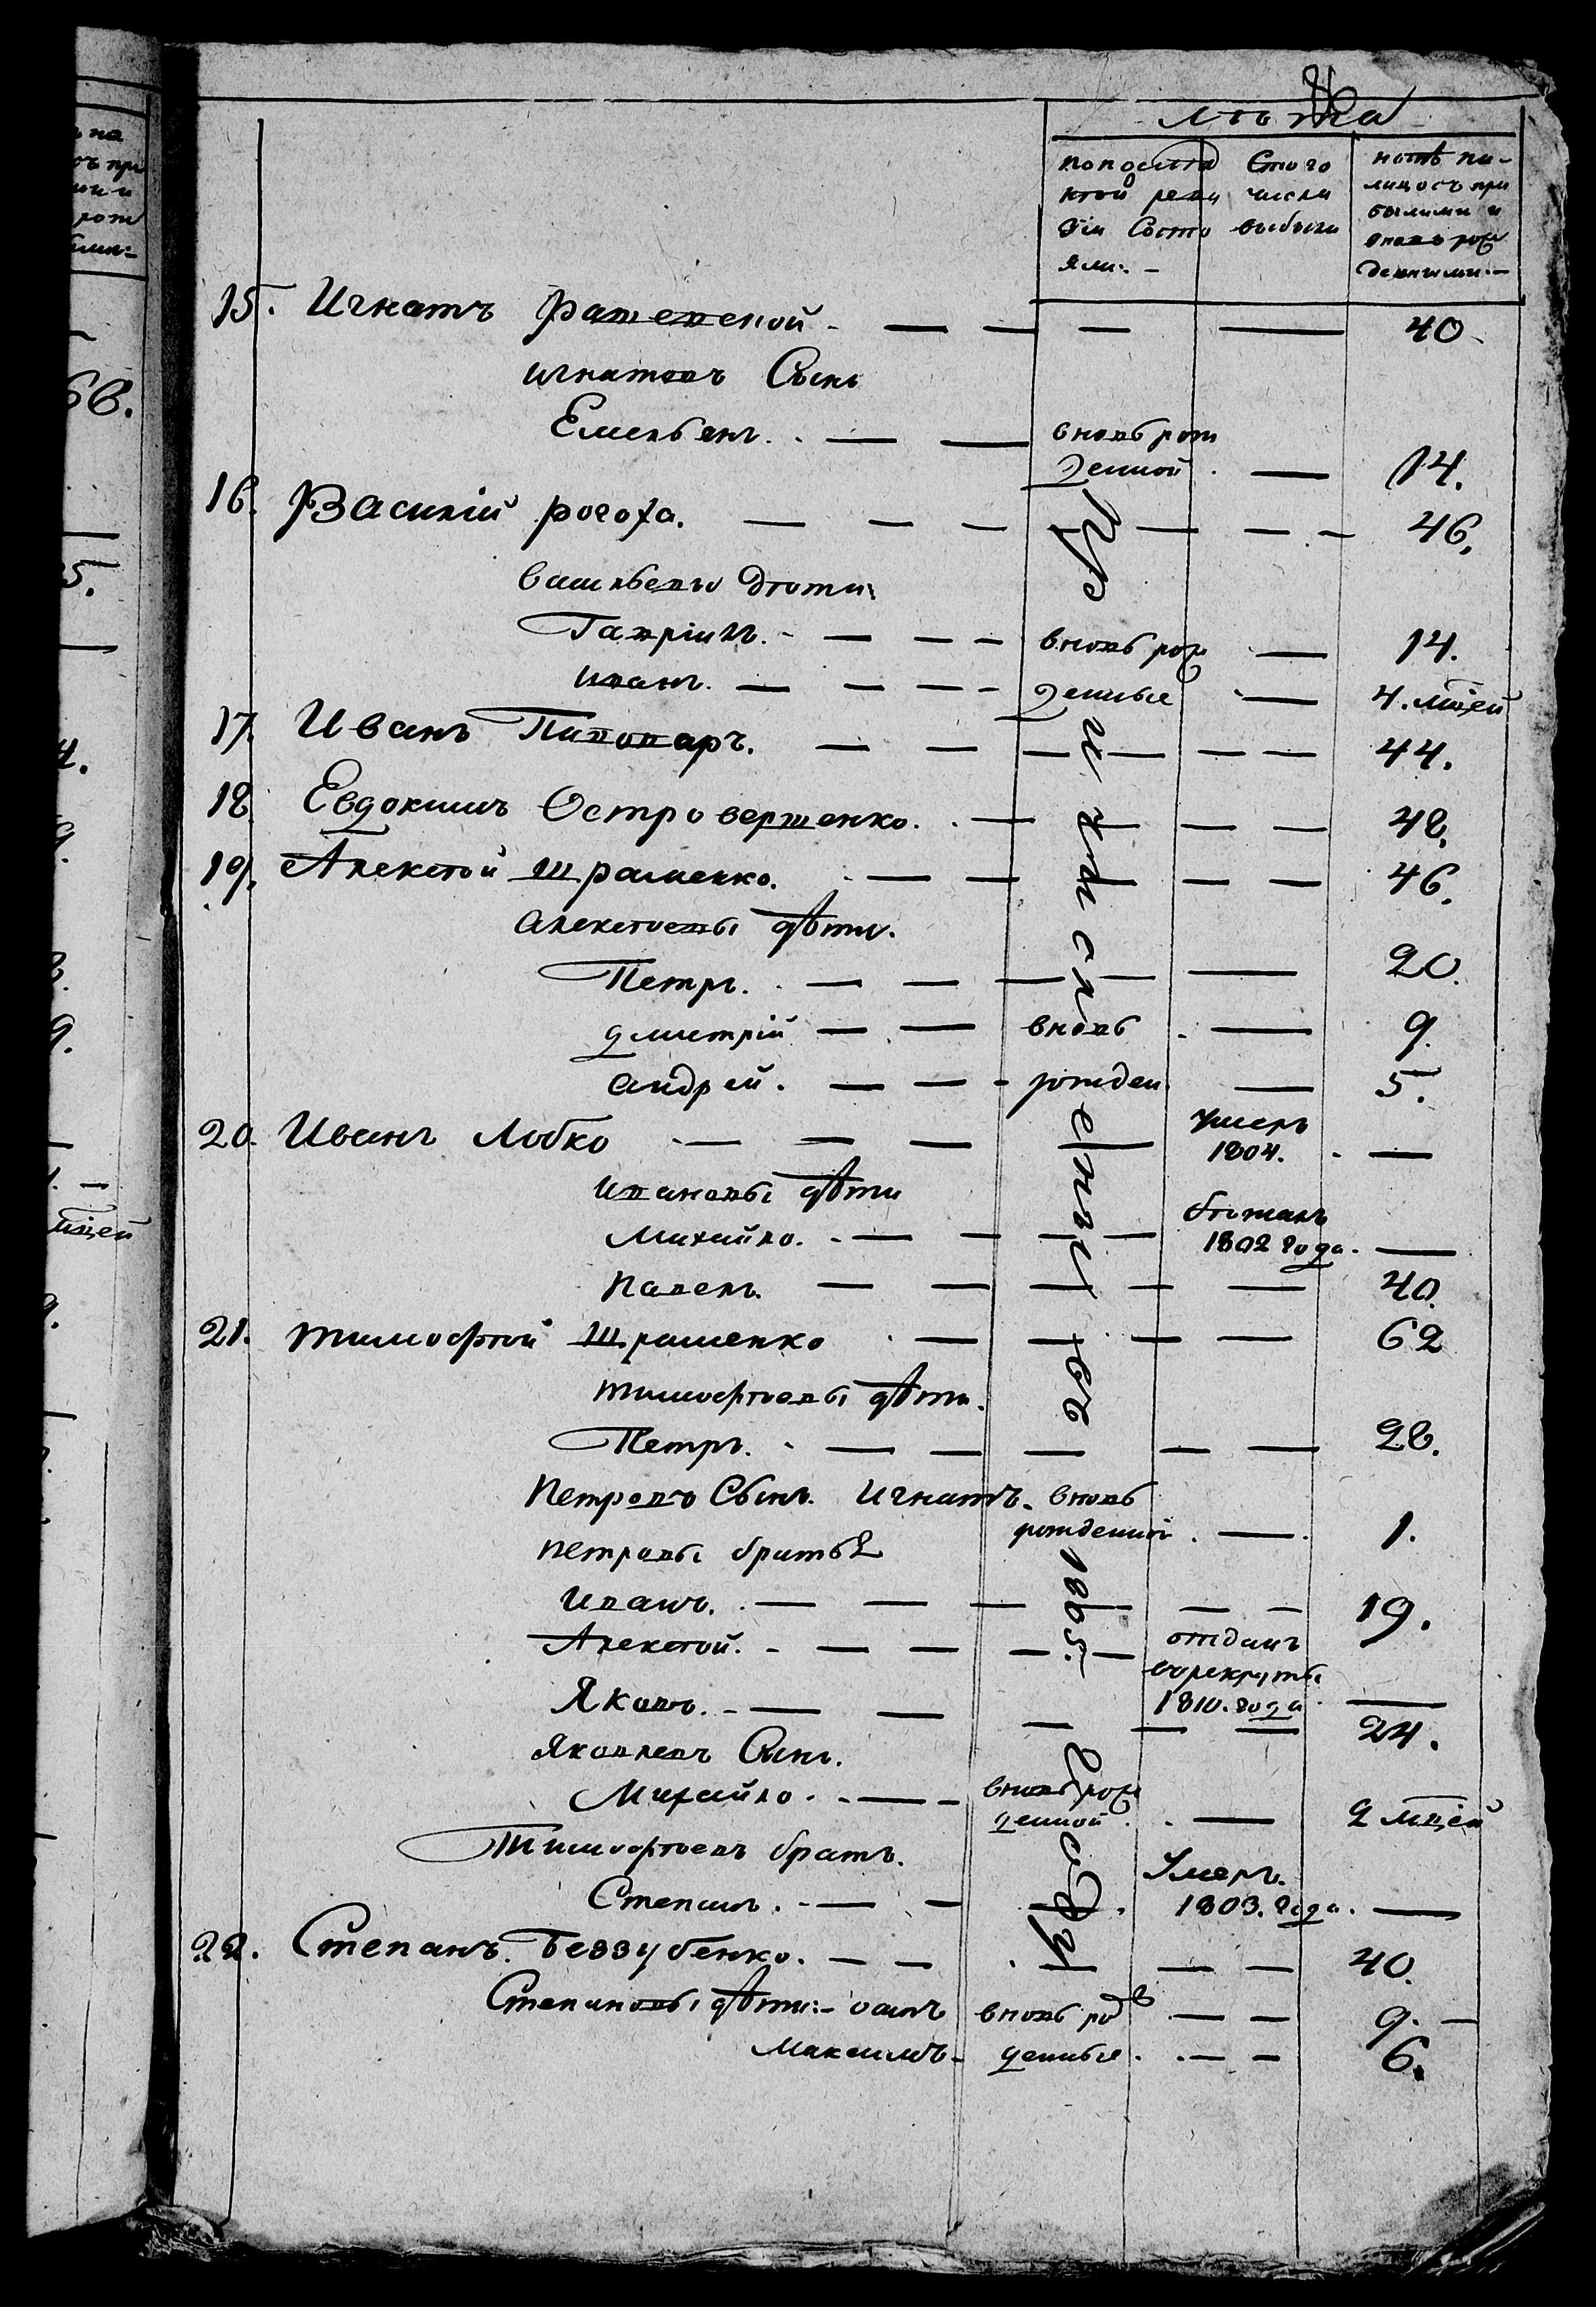 лѣта
попослѣд Стого нынѣ на-
ней реви числа лицосъ при
зіи Состо выбыли былыми и
яли:- вновь рож
денными:-
15. Игнатъ Ратевской - 40.
игнатовъ Сынъ
Емельянъ. вновь рож
денной 14.
16. Василій рогоза. 46.
васильевы дѣти:
Гавріилъ. вновь рож 14.
иванъ. денные 4. мцей
17. Иванъ Пивоваръ. 44.
18. Евдокимъ Островершенко. 48.
19. Алексѣй Шраменко. 46.
алексѣевы дѣти.
Петръ. 20.
дмитрій вновь 9.
андрей. рожден. 5.
20. Иванъ Лобко умеръ
1804.
ивановы дѣти
Михайло. бѣжалъ
1802 года.
павелъ. 40.
21. тимофѣй Шраменко 62
тимофѣевы дѣти.
Петръ. 28.
Петровъ Сынъ. Игнатъ. вновь
рожденной 1.
петровы братья
иванъ. 19.
Алексѣй. отданъ
врекруты
1810. года
Яковъ. 24.
яковлевъ Сынъ.
Михайло. вновь рож
денной. 2 мцей
Тимофѣевъ братъ.
Степанъ. Умеръ.
1803. года.
22. Степанъ Беззубенко. 40.
Степановы дѣти: вновь рож 9.
Максимъ. денные. 6.
Причисленныхъ 1805. году
68.
5.
4.
9.
мцей
9.